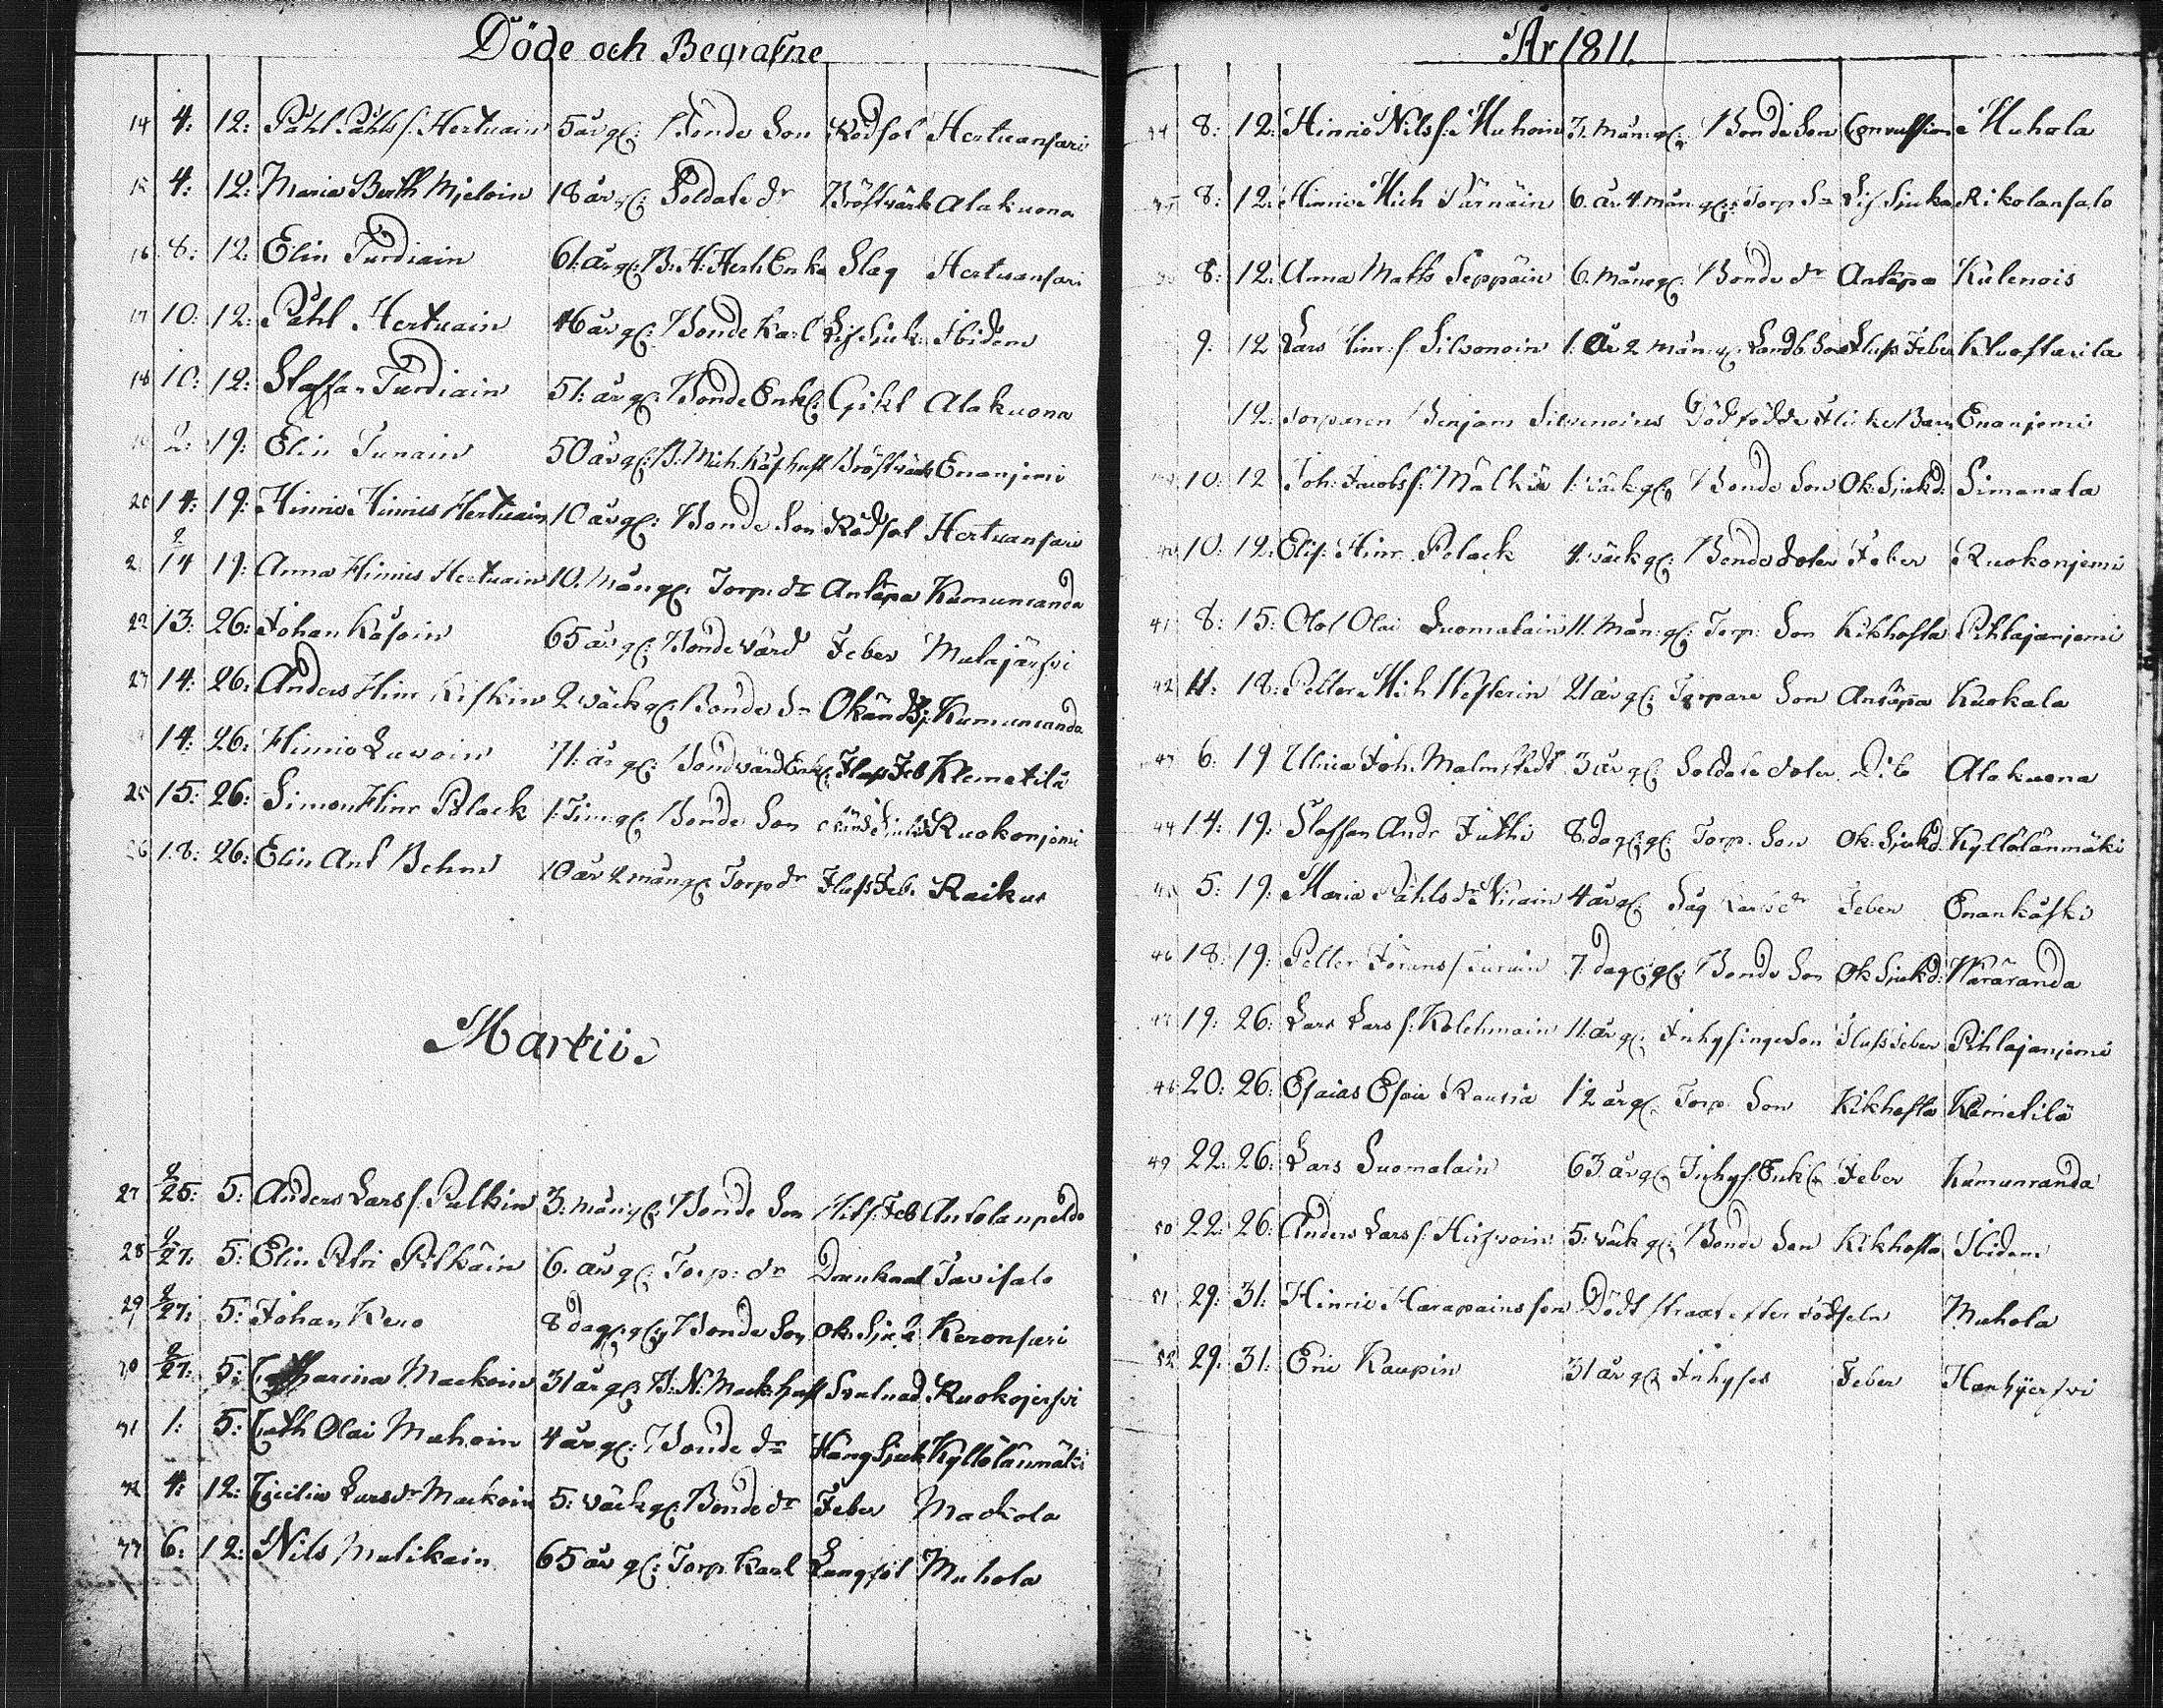 Döde och Begrafne
14 4: 12: Påhl Påhls f. Hertuain 5 år gl: Bonde Son Rödsot Hertuansari
15 4: 12: Maria Berth Mjeloin 18 år gl: Soldate dr Bröstvärk Alakuona
16 8: 12: Elin Turdiain 61: år gl: B: H: Hert: Enka Slag Hertuansari
17 10: 12: Påhl Hertuain 46 år gl: Bonde Karl Lif Sjuk: Ibidem
18 10: 12: Staffan Turdiain 51: år gl: Bonde Enkl: Gikt Alakuona
19 2: 19: Elin Tunain 50 år gl: B: Mich: hust Bröstvärk Enanjemi
20 14: 19: Hinric Hinrics Hertuain 10 år gl: Bonde Son Rödsot Hertuansari
21 14 19: Anna Hinrics Hertuain 10. mån gl: Torp: dr Antäpa Kumunranda
22 13: 26: Johan Käsoin 65 år gl: Bonde värd Feber Mulajärfvi
23 14: 26: Anders Hinr Kiskin 2 väck gl: Bonde Sn Okänd Sj: Kumunranda
14: 26: Hinric Luvoin 71: år gl: Bondvärd Enkl: Fluss Feb Klemetilä
25 15: 26: Simon Hinr Polack 1: Tim: gl: Bonde Son Ruokonjemi
26 18: 26: Elin Ant Behm 10 år 2 mån gl: Torp dr Fluss Feb. Raikus
Martii.
27 2/25: 5: Anders Lars f. Pulkin 3: mån gl: Bonde Son Hits: Feb Antolanpeldo
28 2/27: 5: Elin Petri Pitkäin 6. år gl: Torp: dr Tavisalo
29 2/27: 5: Johan Kero 8 dag: gl: Bonde Son Ok: Sjuk Keronsari
30 2/27: 5: Catharina Mackoin 31 år gl: B: N: Mack: hust Svulnad Ruokojerfvi
31 1: 5: Cath Olai Muhoin 4 år gl: Bonde dr Häng Sjuk Kyllölänmäki
32 4: 12: Cicilia Lars dr Mackoin 5: väck gl: Bonde dr Feber Mackola
33 6: 12: Nils Mulikain 65 år gl: Torp. Karl Lungsot Muhola
År 1811.
34 8: 12: Hinric Nils f: Muhoin 3. Mån: gl: Bonde Son Convulsion Muhola
35 8: 12: Hinric Mich Pärnäin 6. år 4. mån gl: Torp. Sn Lif Sjuka Rikolansalo
8: 12: Anna Matts Seppäin 6. Mån gl: Bonde dr Antäppa Kulenois
9: 12 Lars Hinr: f. Silvonoin 1: år 2 mån: gl: Landb. Son Fluss Feber
12: Torparen Benjam Silvenoines Dödfödde Flicke Barn Enanjemi
10: 12 Joh: Jacobs f: Mälkiä 1: väck gl: Bonde Son Ok: Sjukd: Simanala
40 10: 12: Elis: Hinr. Polack 4. väck gl: Bonde doter Feber Ruokonjemi
41 8: 15: Olof Olai Suomalain 11. Mån: gl: Torp: Son Kikhosta Pihlajanjemi
42 11: 18: Petter Mich Westerin 21 år gl: Torpare Son Antäppa Kuokala
43 6: 19 Ulrica Joh. Malmstedt 3 år gl: Soldate doter Dito Alakuona
44 14: 19: Staffan Andr Juthi 8 dag: gl: Torp. Son Ok: Sjukd: Kyllölänmäki
45 5: 19: Maria Påhls dr Nirain 4 år gl: Såg Karls dr Feber Enankåski
46 18: 19: Petter Jörans f. Turuin 7. dag: gl: Bonde Son Ok Sjukd: Wäräranda
47 19: 26: Lars Lars f: Kolehmain 11. år gl: Inhysinge Son Fluss Feber Pihlajanjemi
48 20: 26: Esaias Esaie Rautia 1 1/2 år gl. Torp. Son Kikhosta Klemetilä
49 22. 26: Lars Suomalain 63 år gl: Inhys: Enkl: Feber Kumunranda
50 22: 26: Anders Lars f: Hirfvoin 5: väck gl: Bonde Son Kikhosta Ibidem
51 29: 31: Hinric Harapains son Dödt straxt efter födseln Muhola
52 29: 31: Eric Kaupin 31 år gl: Inhyses Feber Hanhijerfvi